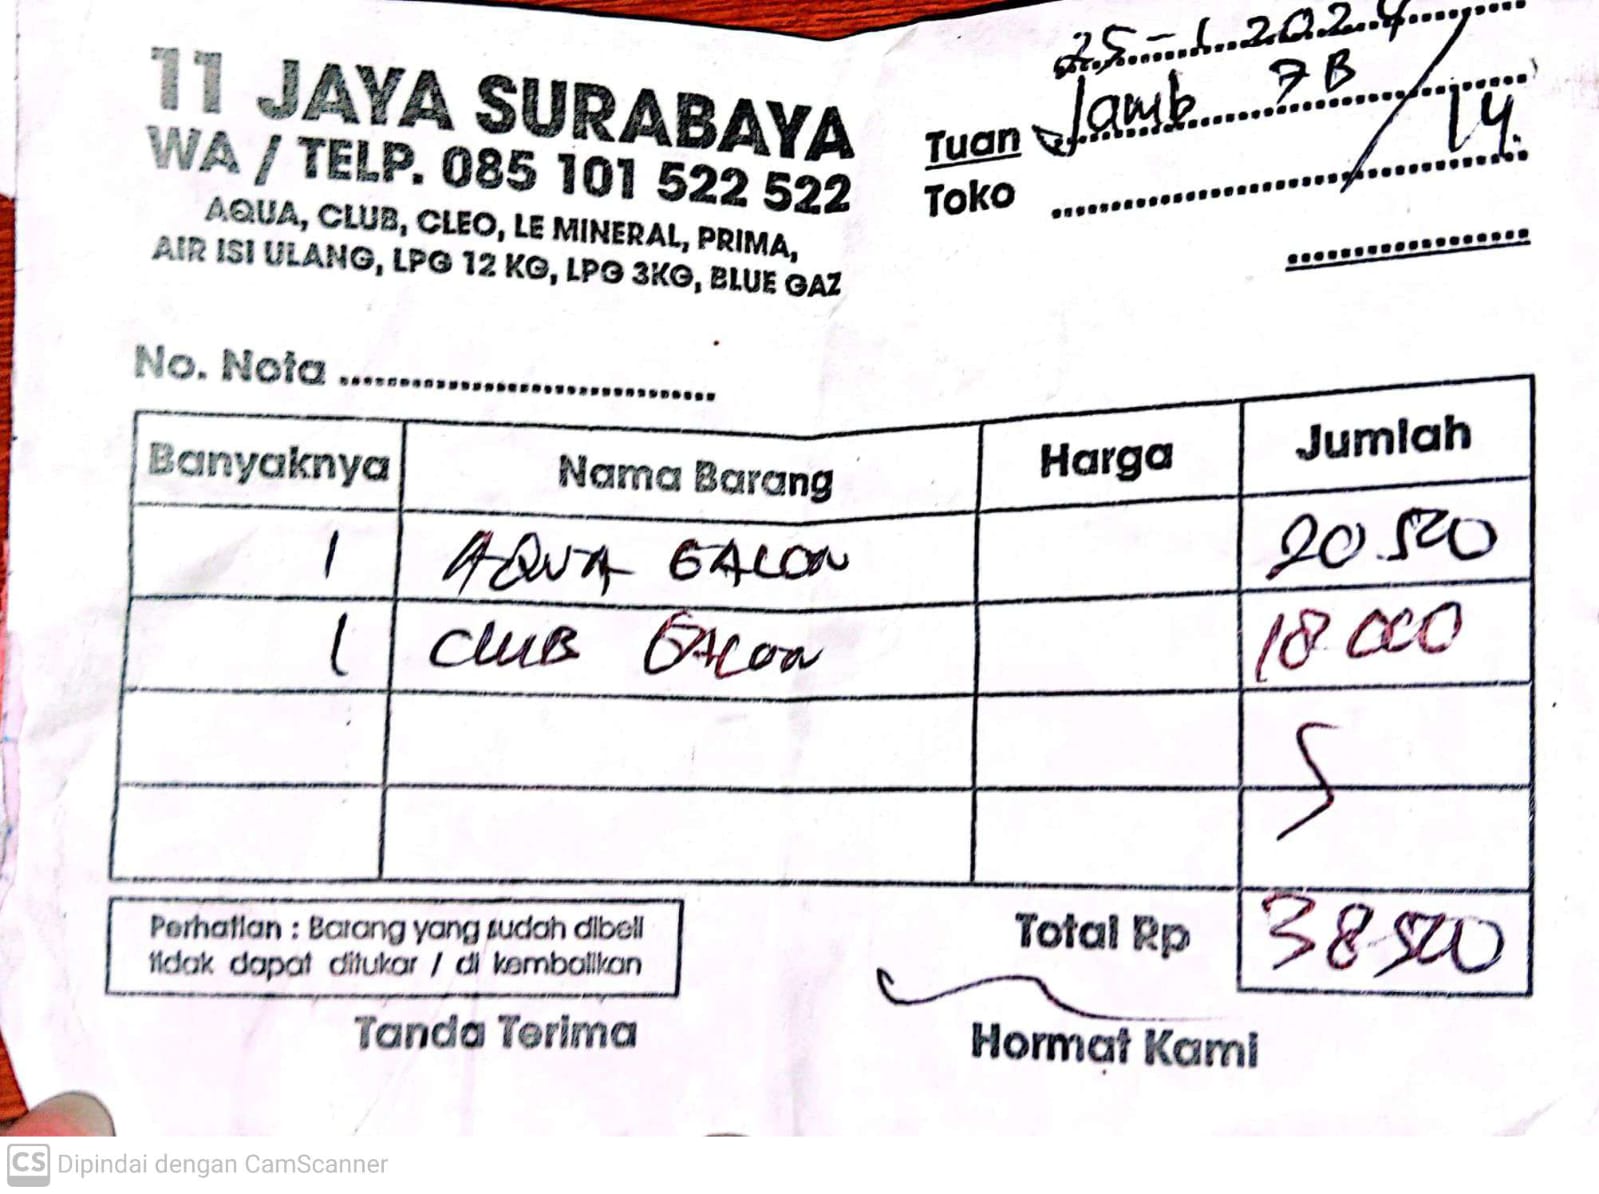 11 JAYA SURABAYA
WA / TELP. 085 101 522 522
AQUA, CLUB, CLEO, LE MINERAL, PRIMA,
AIR ISI ULANG, LPG 12 KG, LPG 3KG, BLUE GAZ
25-1.2024
Tuan Jamb 7B / 14.
Toko
No. Nota
Banyaknya Nama Barang Harga Jumlah
1 AQUA GALON 20.500
1 CLUB GALON 18 000
Total Rp 38.500
Perhatian : Barang yang sudah dibeli
tidak dapat ditukar / di kembalikan
Tanda Terima
Hormat Kami
CS Dipindai dengan CamScanner